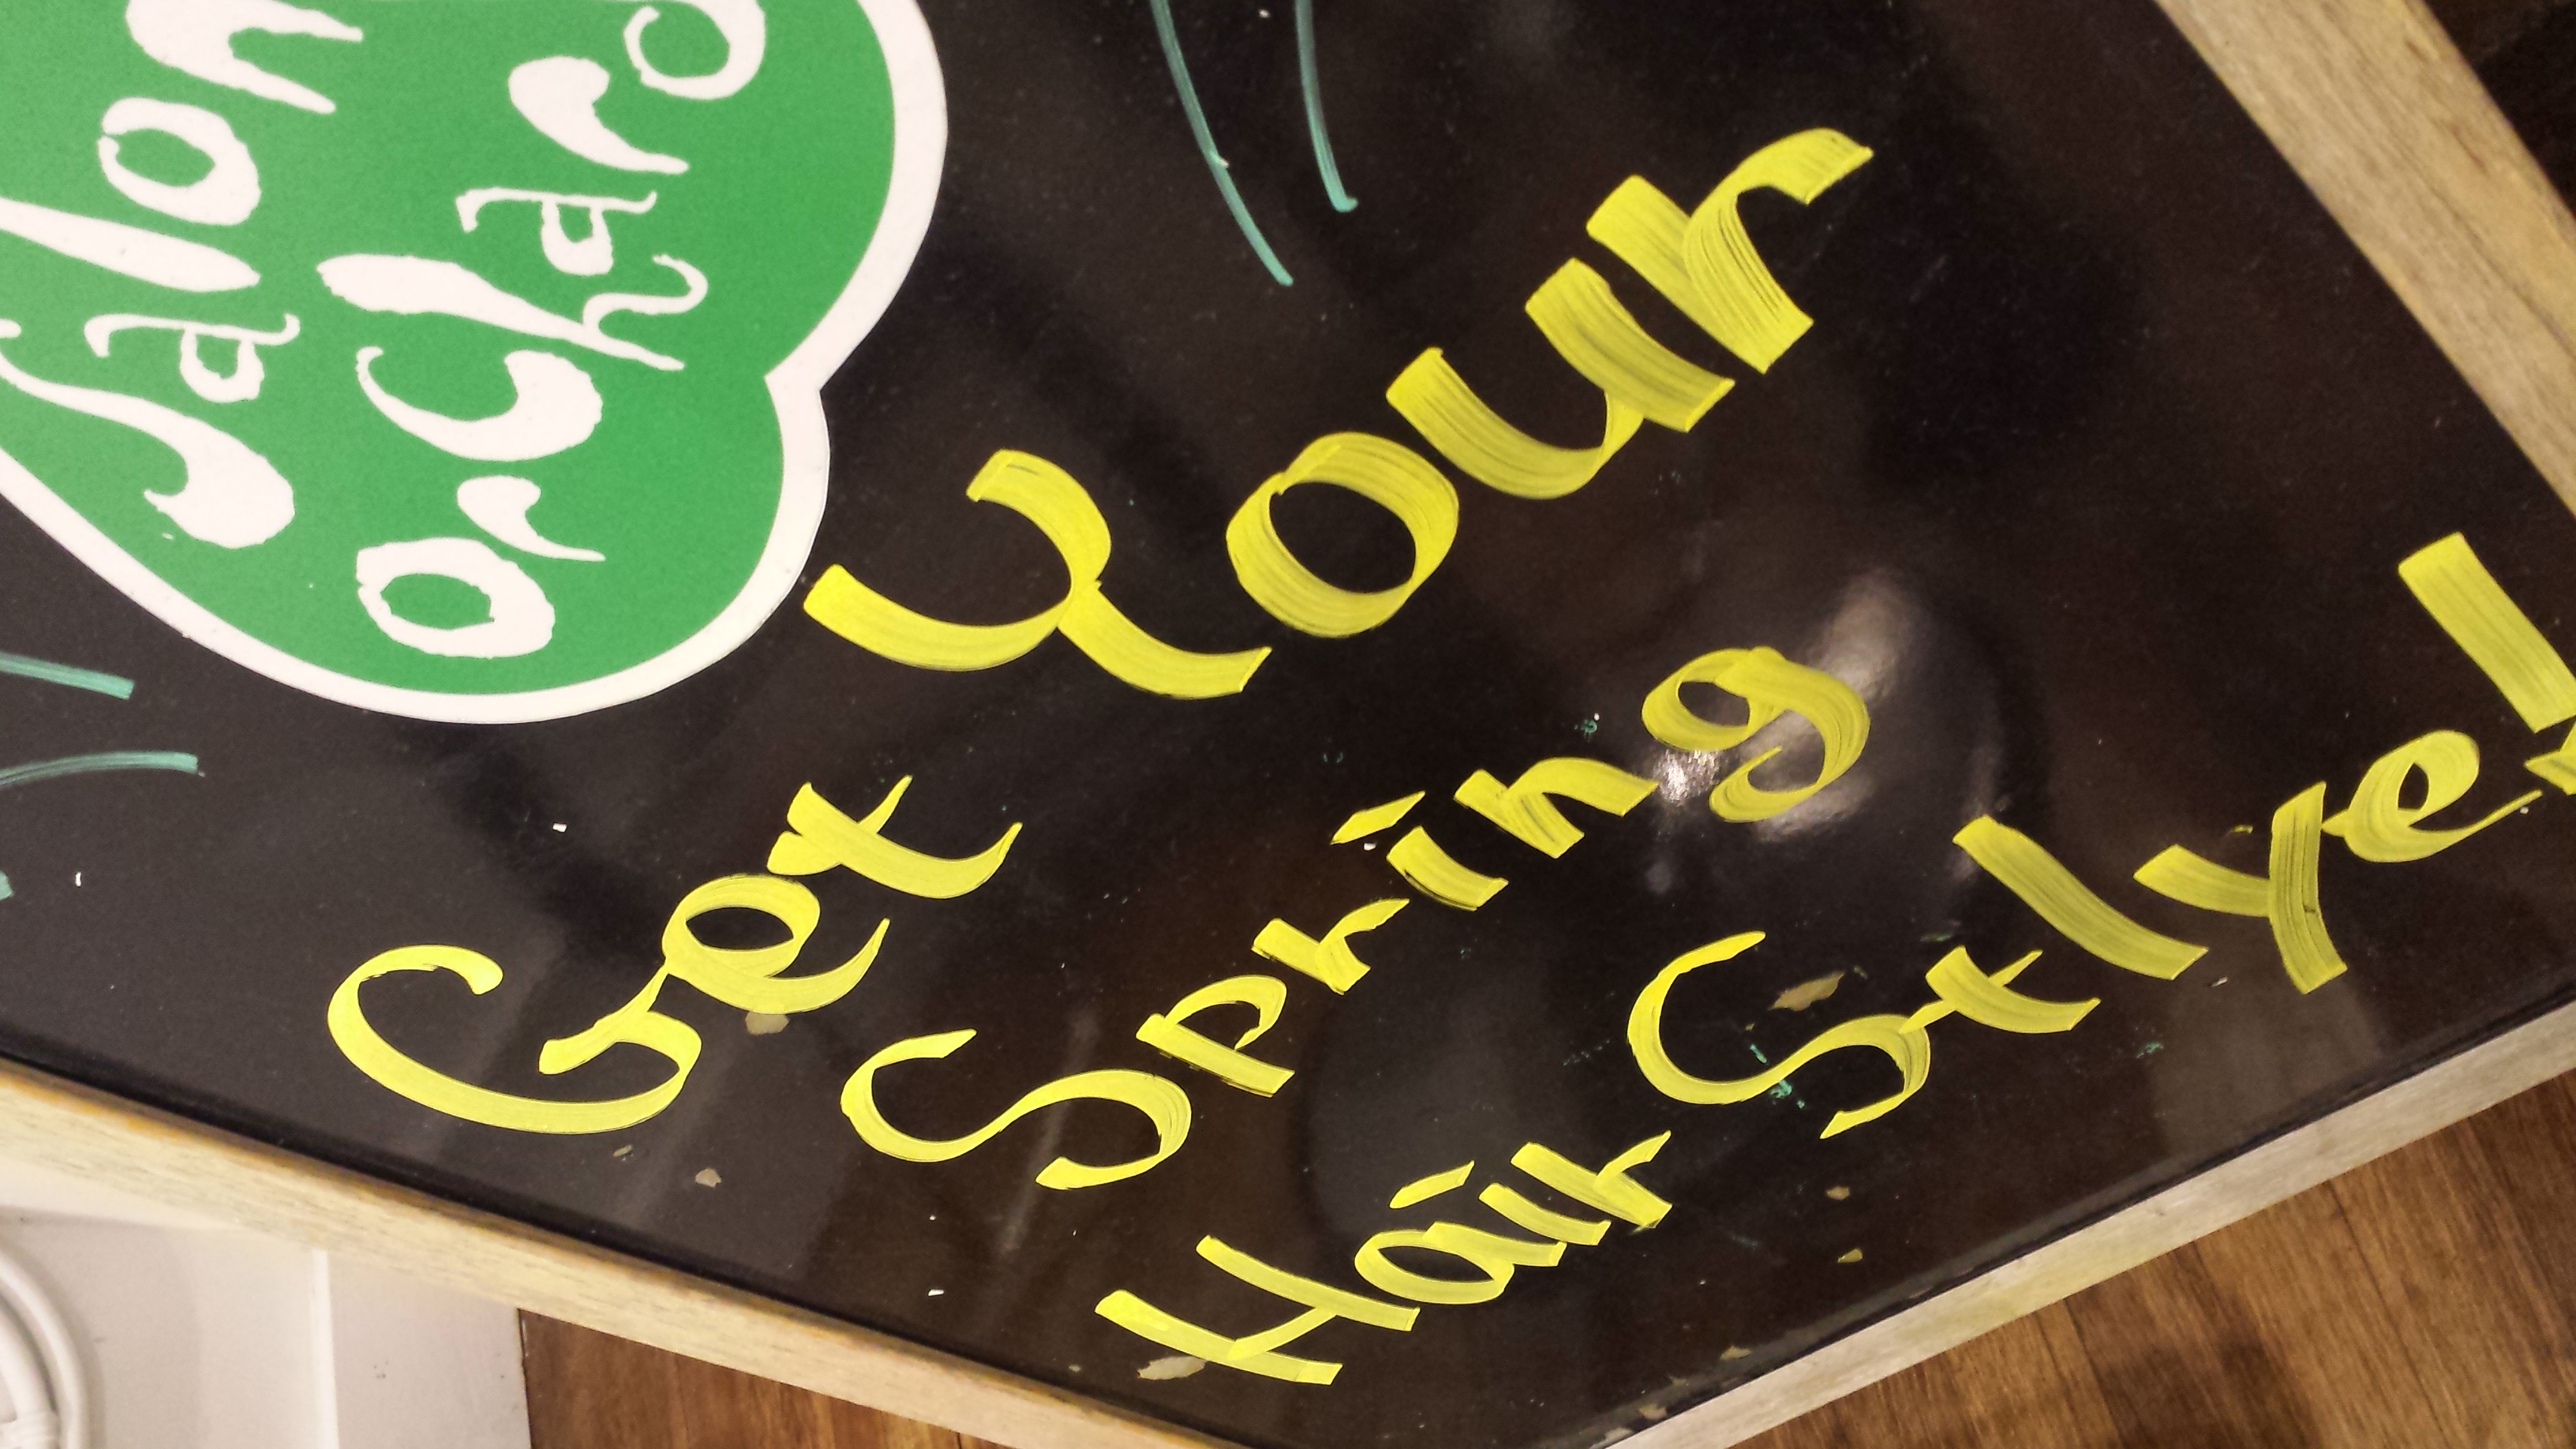 Salon
Orchard
Get Your
Spring
Hair Stlye!